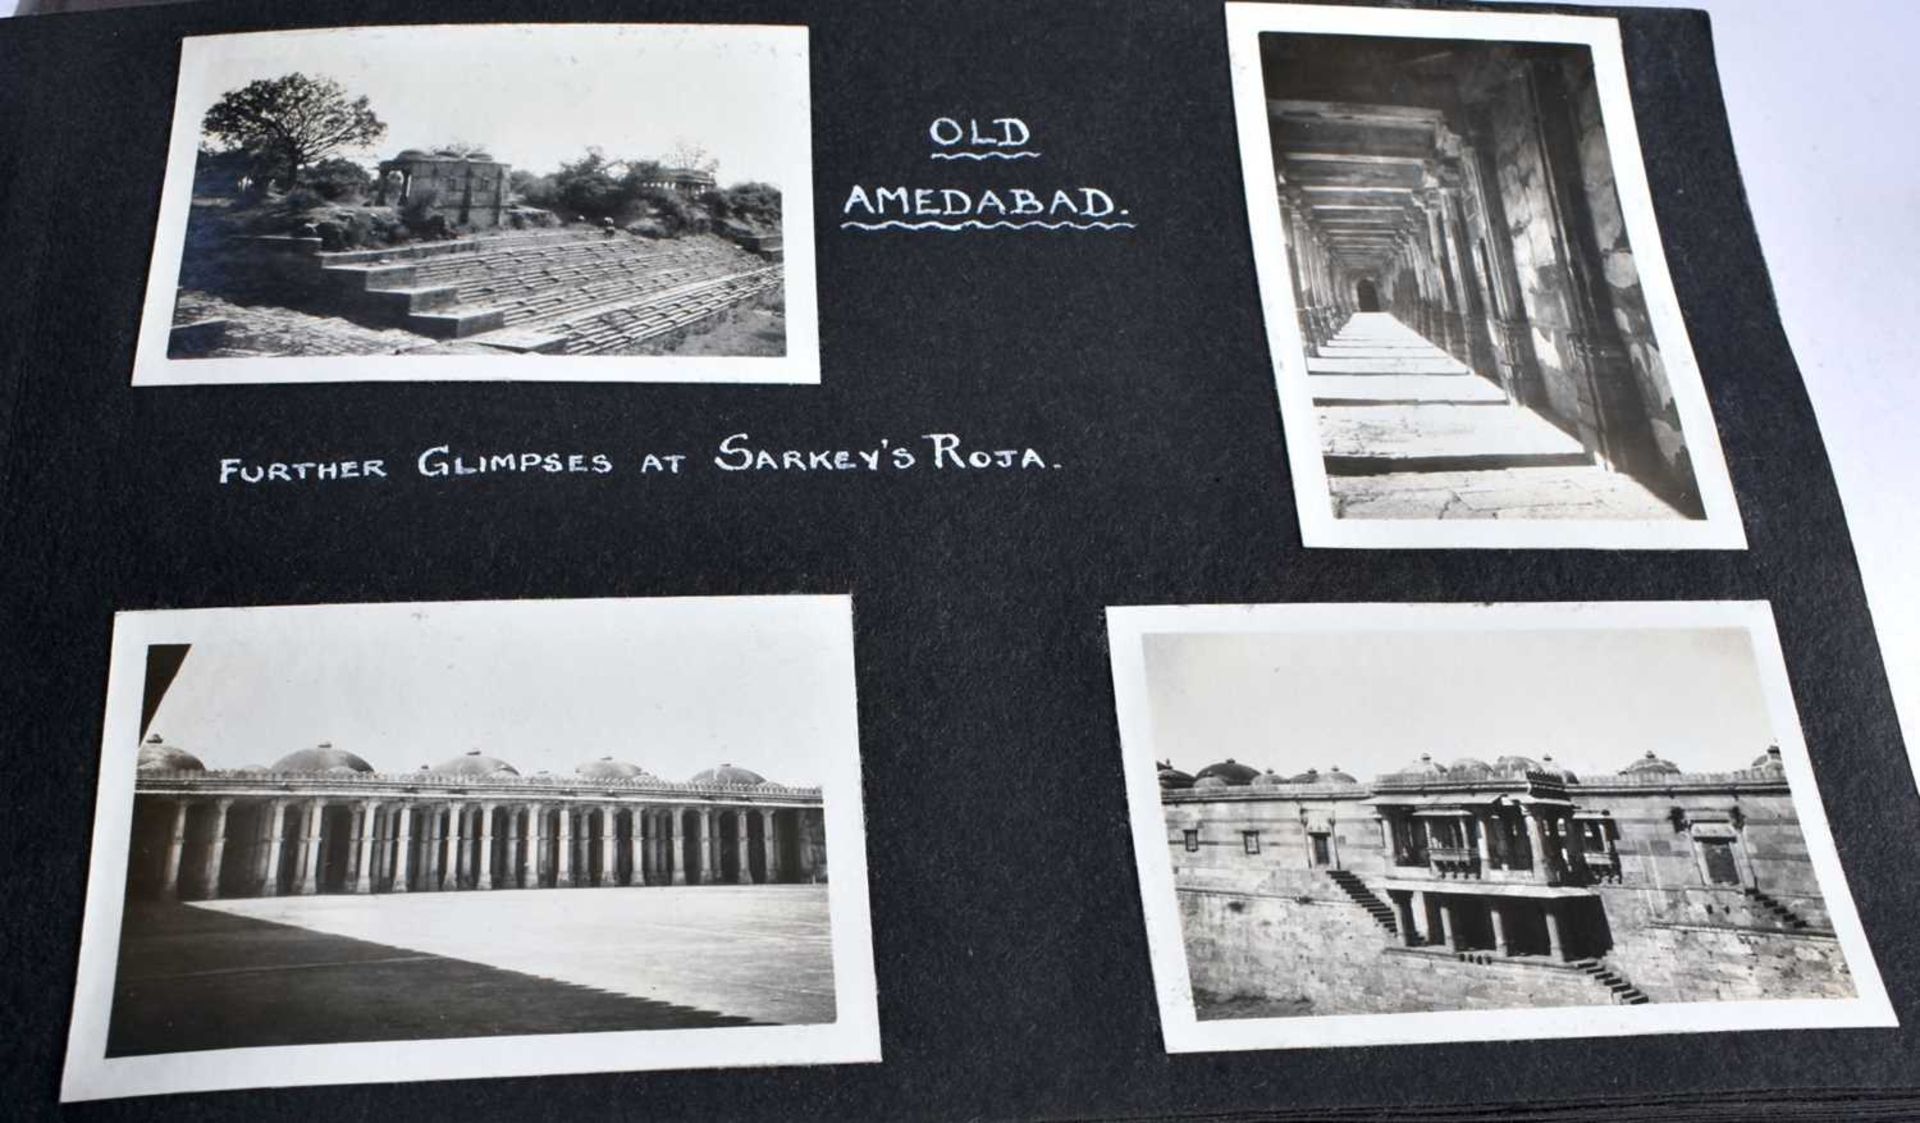 OLD
AMEDABAD.
FURTHER GLIMPSES AT SARKEY'S ROJA.